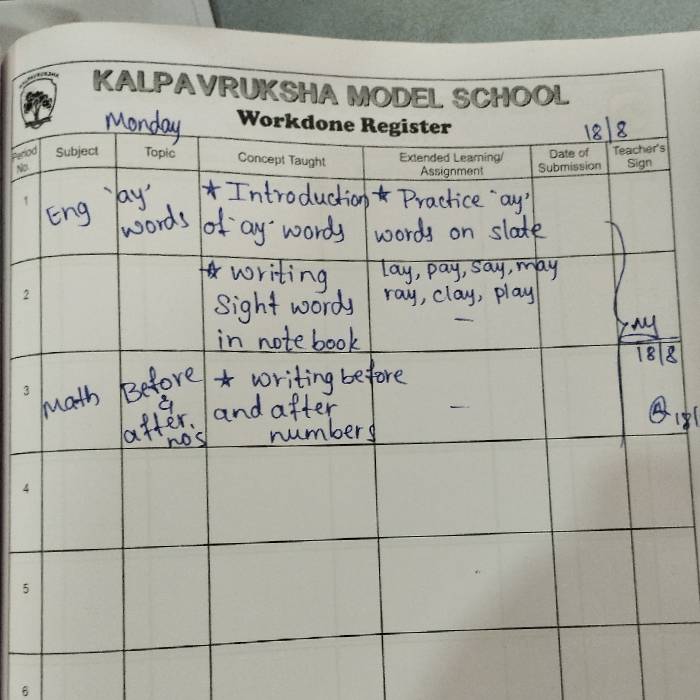 KALPAVRUKSHA
KALPAVRUKSHA MODEL SCHOOL
Monday Workdone Register 18/8
Period No. Subject Topic Concept Taught Extended Learning/ Assignment Date of Submission Teacher's Sign
1 Eng 'ay' words ★ Introduction of 'ay' words ★ Practice 'ay' words on slate
lay, pay, say, may
ray, clay, play
2 ★ writing Sight words in notebook –
18/8
3 Math Before & after. nos ★ writing before and after numbers –
18/
4
5
6